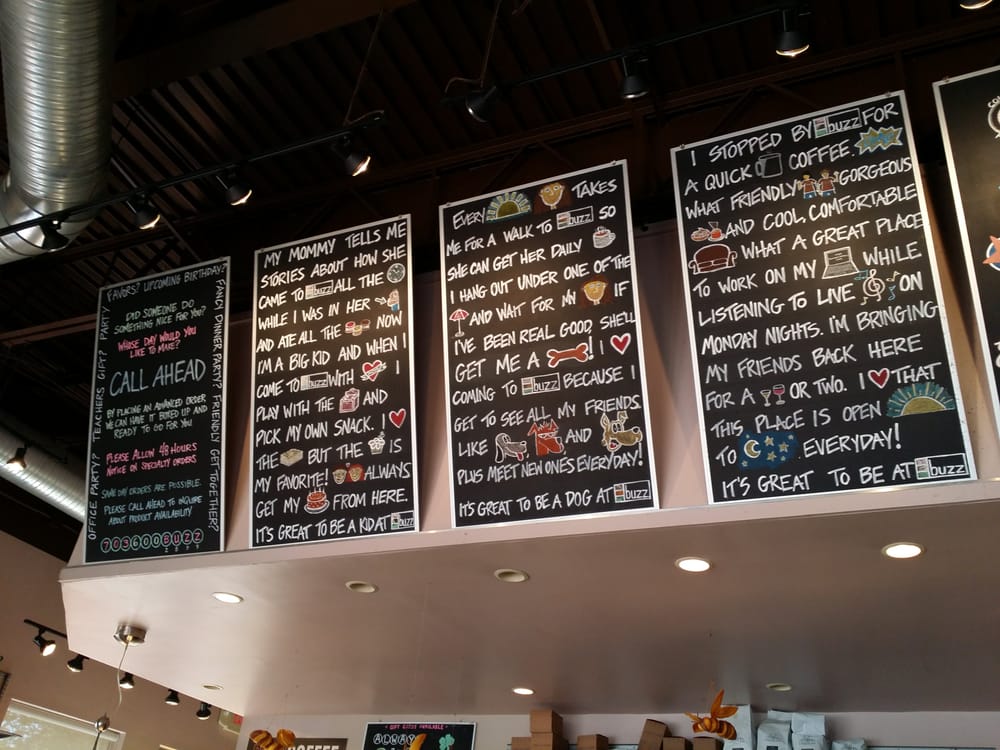 FAVORS? UPCOMING BIRTHDAY?
OFFICE PARTY? TEACHERS GIFT? PARTY
FANCY DINNER PARTY? FRIENDLY GET TOGETHER?
DID SOMEONE DO
SOMETHING NICE FOR YOU?
WHOSE DAY WOULD YOU
LIKE TO MAKE?
CALL AHEAD
BY PLACING AN ADVANCED ORDER
WE CAN HAVE IT BOXED UP AND
READY TO GO FOR YOU
PLEASE ALLOW 48 HOURS
NOTICE ON SPECIALTY ORDERS
SAME DAY ORDERS ARE POSSIBLE.
PLEASE CALL AHEAD TO INQUIRE
ABOUT PRODUCT AVAILABILITY
703600BUZZ
2899
MY MOMMY TELLS ME
STORIES ABOUT HOW SHE
CAME TO buzz ALL THE
WHILE I WAS IN HER
AND ATE ALL THE NOW
I'M A BIG KID AND WHEN I
COME TO buzz WITH I
PLAY WITH THE AND
PICK MY OWN SNACK. I
THE BUT THE IS
MY FAVORITE! ALWAYS
GET MY FROM HERE.
IT'S GREAT TO BE A KID AT buzz
EVERY TAKES
ME FOR A WALK TO buzz SO
SHE CAN GET HER DAILY
I HANG OUT UNDER ONE OF THE
AND WAIT FOR MY IF
I'VE BEEN REAL GOOD, SHE'LL
GET ME A ! I
COMING TO buzz BECAUSE I
GET TO SEE ALL MY FRIENDS
LIKE AND
PLUS MEET NEW ONES EVERYDAY!
IT'S GREAT TO BE A DOG AT buzz
I STOPPED BY buzz FOR
A QUICK COFFEE.
WHAT FRIENDLY GORGEOUS
AND COOL, COMFORTABLE
WHAT A GREAT PLACE
TO WORK ON MY WHILE
LISTENING TO LIVE ON
MONDAY NIGHTS. I'M BRINGING
MY FRIENDS BACK HERE
FOR A OR TWO. I THAT
THIS PLACE IS OPEN
TO EVERYDAY!
IT'S GREAT TO BE AT buzz
GIFT CARDS AVAILABLE
ALWAYS
COFFEE